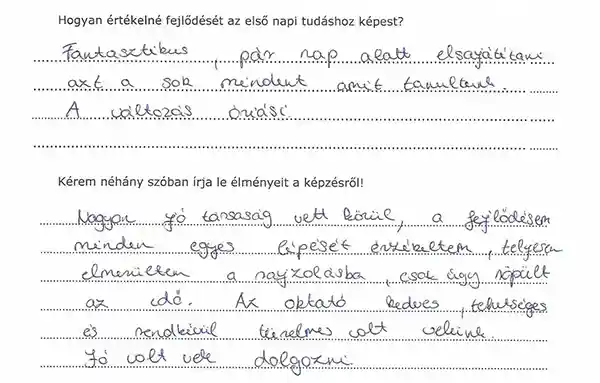 Hogyan értékelné fejlődését az első napi tudáshoz képest?
Fantasztikus, pár nap alatt elsajátítani
azt a sok mindent amit tanultunk.
A változás óriási.
Kérem néhány szóban írja le élményeit a képzésről!
Nagyon jó társaság vett körül, a fejlődésem
minden egyes lépését érzékeltem, teljesen
elmerültem a rajzolásba, csak úgy röpült
az idő. Az oktató kedves, tehetséges
és rendkívül türelmes volt velünk.
Jó volt vele dolgozni.